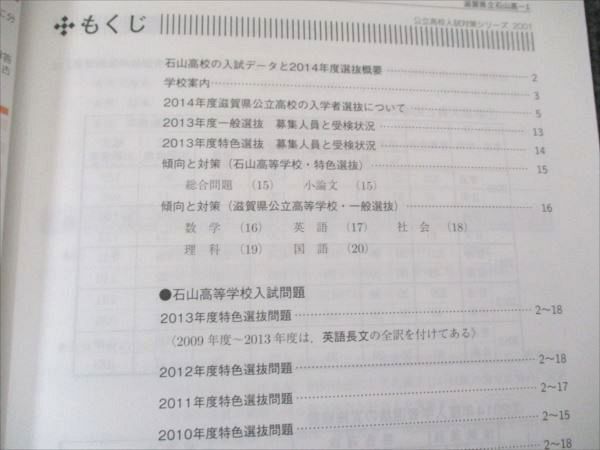 滋賀県立石山高－1
公立高校入試対策シリーズ 2001
もくじ
石山高校の入試データと2014年度選抜概要 2
学校案内 3
2014年度滋賀県公立高校の入学者選抜について 5
2013年度一般選抜 募集人員と受検状況 13
2013年度特色選抜 募集人員と受検状況 14
傾向と対策（石山高等学校・特色選抜） 15
総合問題 (15) 小論文 (15)
傾向と対策（滋賀県公立高等学校・一般選抜） 16
数学 (16) 英語 (17) 社会 (18)
理科 (19) 国語 (20)
●石山高等学校入試問題
2013年度特色選抜問題 2〜18
〈2009年度〜2013年度は、英語長文の全訳を付けてある〉
2012年度特色選抜問題 2〜18
2011年度特色選抜問題 2〜17
2010年度特色選抜問題 2〜15
2〜18